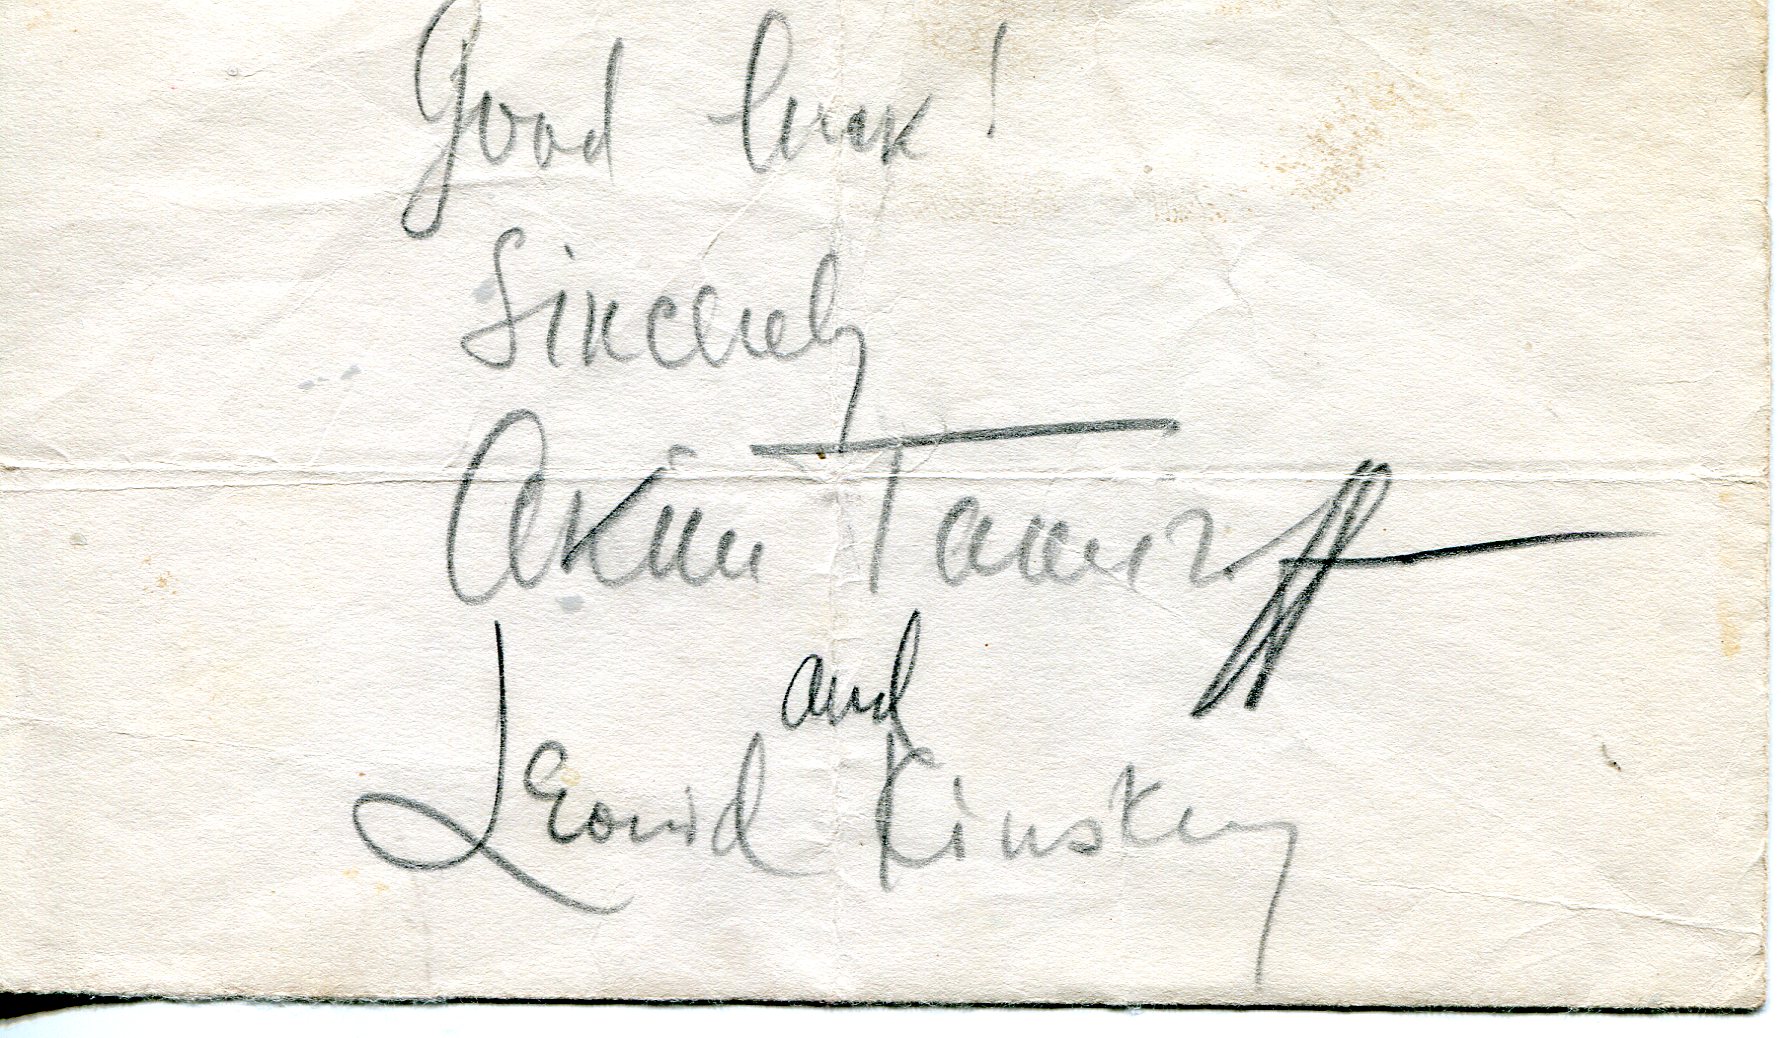 Good luck!
Sincerely
Akim Tamiroff
and
Leonid Kinskey